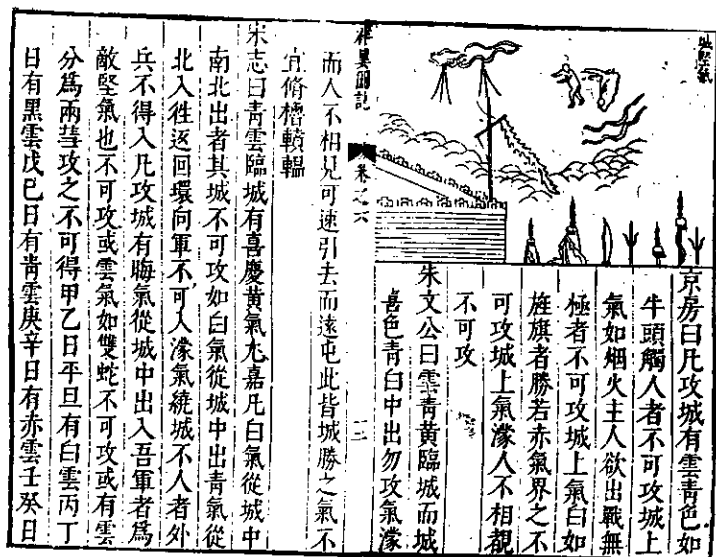 京房曰凡攻城有雲青色如
牛頭觸人者不可攻城上
氣如烟火主人欲出戰無
極者不可攻城上氣白如
旌旗者勝若赤氣界之不
可攻城上氣濛人不相覩
不可攻
朱文公曰雲青黃臨城而城
喜色青白中出勿攻氣濛
祥異圖記 卷之六
而人不相見可速引去而遠屯此皆城勝之氣不
宜脩櫓轒轀
宋志曰青雲臨城有喜慶黄氣尤嘉凡白氣從城中
南北出者其城不可攻如白氣從城中出青氣從
北入徃返回環向軍不可入濛氣繞城不入者外
兵不得入凡攻城有晦氣從城中出入吾軍者爲
敵堅氣也不可攻或雲氣如雙蛇不可攻或有雲
分爲兩彗攻之不可得甲乙日平旦有白雲丙丁
日有黑雲戊巳日有青雲庚辛日有赤雲壬癸日